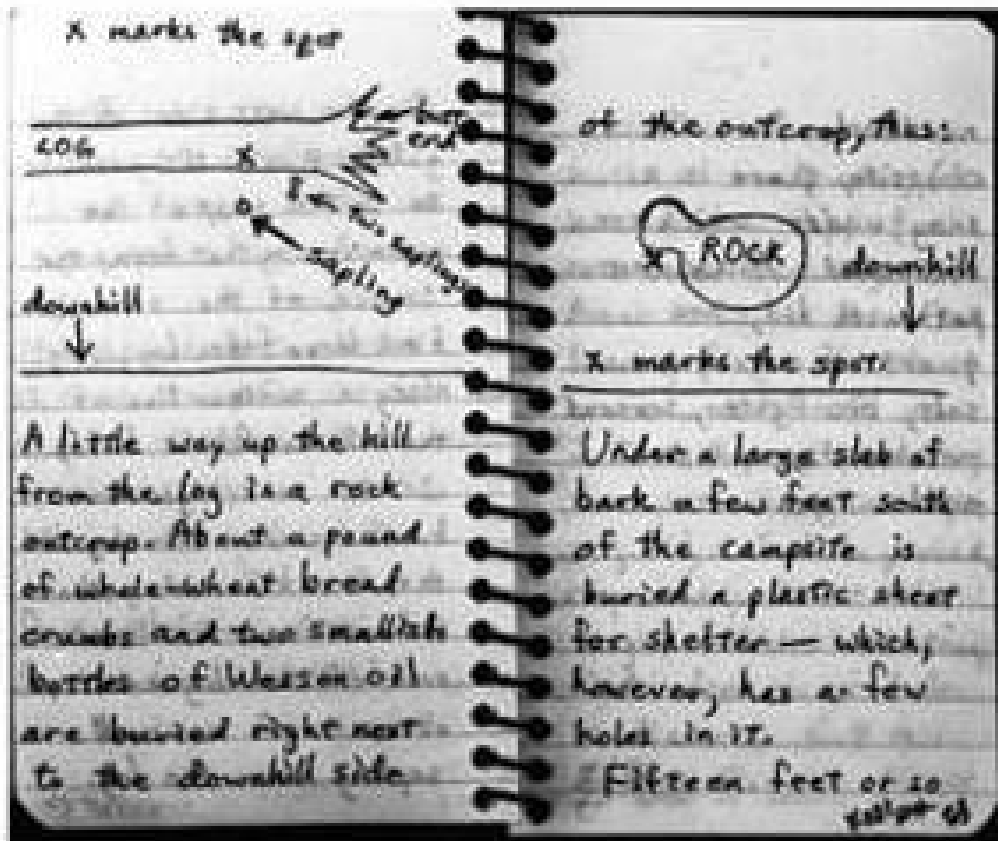 x marks the spot
LOG
x
end
Between two saplings
sapling
downhill
A little way up the hill
from the log is a rock
outcrop. About a pound
of whole-wheat bread
crumbs and two smallish
bottles of Wesson oil
are buried right next
to the downhill side
of the outcrop, thus:
x
ROCK
downhill
x marks the spot.
Under a large slab of
bark a few feet south
of the campsite is
buried a plastic sheet
for shelter — which,
however, has a few
holes in it.
Fifteen feet or so